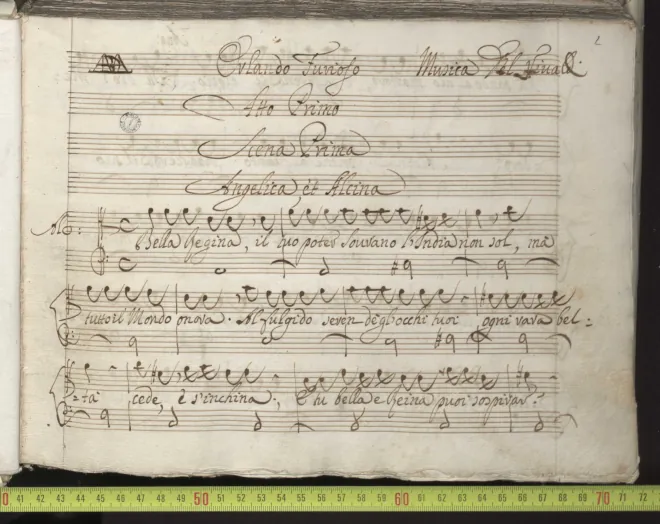 Orlando Furioso Musica Del Vivaldi
2
Atto Primo
Scena Prima
Angelica, et Alcina
Alc:
Bella Regina, il suo poter sovrano l'India non sol, mà
tutto il Mondo onora. Al fulgido seren degl'occhi tuoi ogni rara bel=
=tà cede, e s'inchina., E tu bella e Reina puoi sospirar?
0 41 42 43 44 45 46 47 48 49 50 51 52 53 54 55 56 57 58 59 60 61 62 63 64 65 66 67 68 69 70 71 72